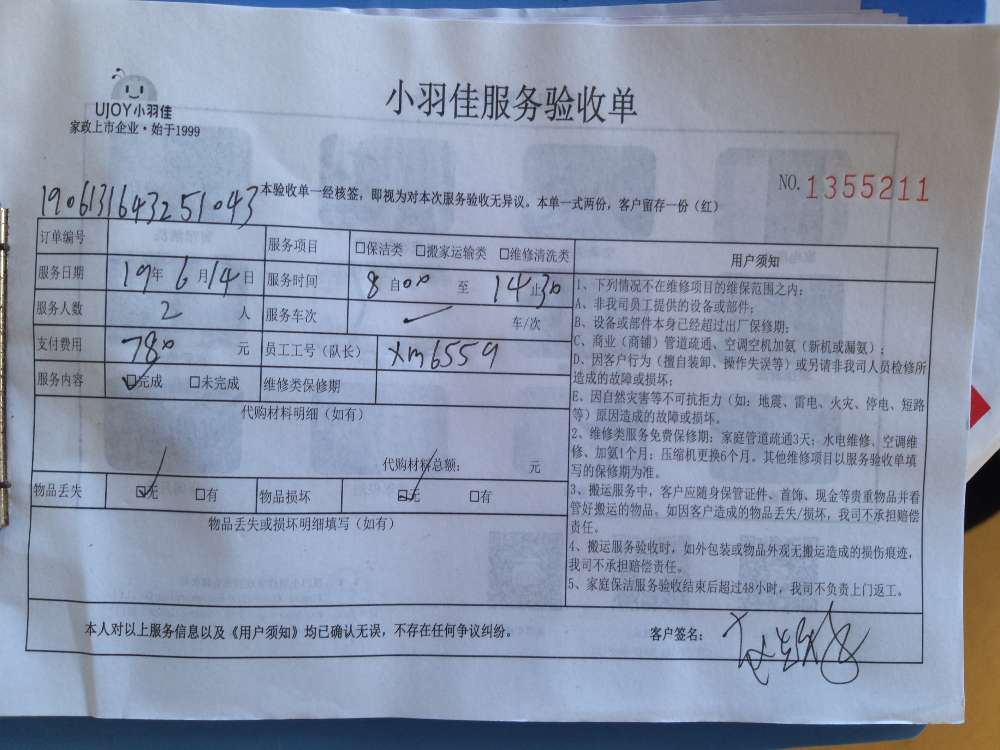 UJOY小羽佳
家政上市企业·始于1999
小羽佳服务验收单
NO. 1355211
190613164325 1043
本验收单一经核签，即视为对本次服务验收无异议。本单一式两份，客户留存一份（红）
订单编号 服务项目 □保洁类 □搬家运输类 □维修清洗类
服务日期 19年 6月14日 服务时间 8自00 至 14止30
服务人数 2 人 服务车次 车/次
支付费用 780 元 员工工号（队长） xm6559
服务内容 ☑完成 □未完成 维修类保修期
代购材料明细（如有）
代购材料总额： 元
物品丢失 ☑无 □有 物品损坏 ☑无 □有
物品丢失或损坏明细填写（如有）
用户须知
1、下列情况不在维修项目的维保范围之内：
A、非我司员工提供的设备或部件；
B、设备或部件本身已经超过出厂保修期；
C、商业（商铺）管道疏通、空调空机加氨（新机或漏氨）；
D、因客户行为（擅自装卸、操作失误等）或另请非我司人员检修所
造成的故障或损坏；
E、因自然灾害等不可抗拒力（如：地震、雷电、火灾、停电、短路
等）原因造成的故障或损坏。
2、维修类服务免费保修期：家庭管道疏通3天；水电维修、空调维
修、加氨1个月；压缩机更换6个月。其他维修项目以服务验收单填
写的保修期为准。
3、搬运服务中，客户应随身保管证件、首饰、现金等贵重物品并看
管好搬运的物品。如因客户造成的物品丢失/损坏，我司不承担赔偿
责任。
4、搬运服务验收时，如外包装或物品外观无搬运造成的损伤痕迹，
我司不承担赔偿责任。
5、家庭保洁服务验收结束后超过48小时，我司不负责上门返工。
本人对以上服务信息以及《用户须知》均已确认无误，不存在任何争议纠纷。 客户签名：